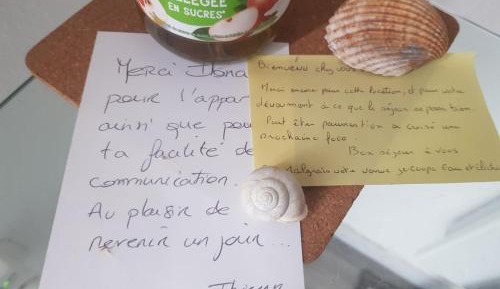 ALLÉGÉE
EN SUCRES*
Merci Ilona
pour l'appar
ainsi que pou
ta facilité de
communication.
Au plaisir de
revenir un jour...
Bienvenu chez vous
Merci encore pour cette location, et pour votre
dévouement à ce que le séjour se passe bien.
Peut être pourront on se croisé une
prochaine fois.
Bon séjour à vous
Malgrais votre venue je coupe l'eau et